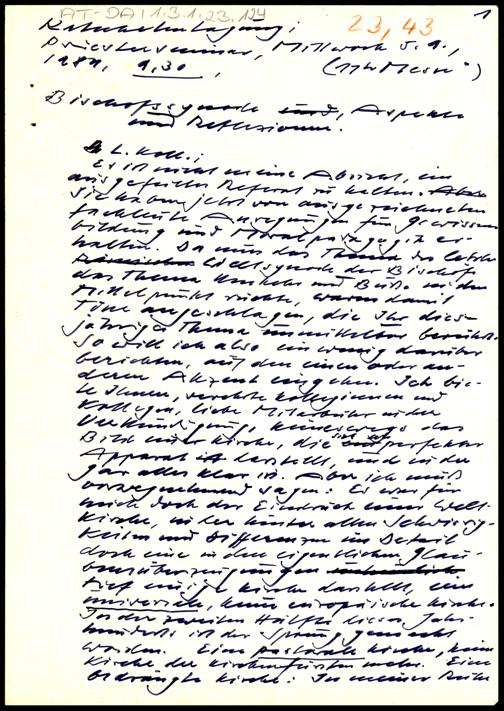 AT-DA 1.3.1.23.124
23, 43
1
Katechetentagung;
Priesterseminar, Mittwoch 5.9.,
1984, 9.30,
Bischofssynode und, Aspekte
und Reflexionen.
L. Koll.;
Es ist nicht meine Absicht, ein
ausgefeiltes Referat zu halten. Aber
Sie haben jetzt von ausgezeichneten
Fachleute Anregungen für Gewissens
bildung und Moralpädagogik er-
halten. Da nun das Thema der letzten
Römischen Weltsynode der Bischöfe
das Thema Umkehr und Buße in den
Mittelpunkt rückte, waren damit
Töne angeschlagen, die Ihr dies-
jähriges Thema unmittelbar berühren.
So will ich also ein wenig darüber
berichten, auf den einen oder an-
deren Akzent eingehen. Ich bie-
te Ihnen, verehrte Kolleginnen und
Kollegen, liebe Mitarbeiter in der
Verkündigung, keineswegs das
Bild einer Kirche, die sich als perfekter
Apparat darstellt, und in der
gar alles klar ist. Aber ich muß
vorwegnehmend sagen: Es war für
mich doch der Eindruck einer Welt-
kirche, in der hinter allen Schwierig-
keiten und Differenzen im Detail
doch eine in den eigentlichen Glau-
bensüberzeugungen
tief einige Kirche darstellt, eine
universale, keine europäische Kirche.
In der zweiten Hälfte dieses Jahr-
hunderts ist der Sprung gemacht
worden. Eine pastorale Kirche, keine
Kirche der Kirchenfürsten mehr. Eine
bedrängte Kirche: In meiner Reihe